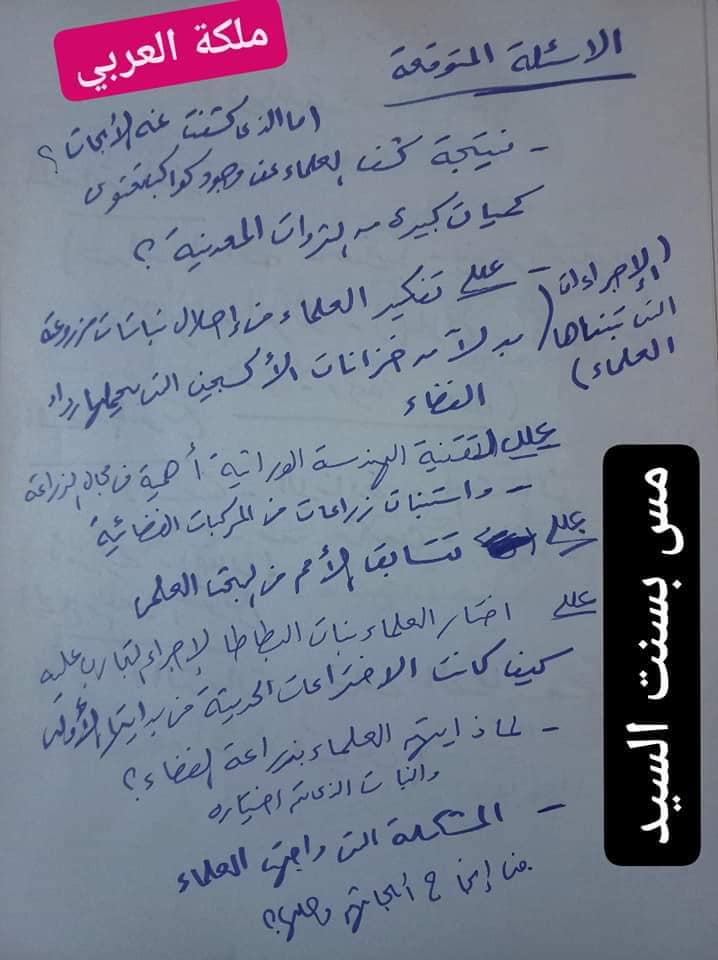 ملكة العربي
الاسئلة المتوقعة
(ما الذي كشفت عنه الأبحاث؟
- نتيجة كشف العلماء عن وجود كواكب تحتوى
كميات كبيرة من الثروات المعدنية؟
- علل تفكير العلماء من إحلال نباتات مزروعة
بدلاً من خزانات الأكسجين التى يحملها رواد
الفضاء
(الإجراءات
التى تبناها
العلماء)
علل لتقنية الهندسة الوراثية أهمية فى مجال الزراعة
- واستنبات زراعات فى المركبات الفضائية
علل تتسابق الأمم فى البحث العلمى
علل اختار العلماء نبات البطاطا لإجراء التجارب عليه
كيف كانت الاختراعات الحديثة فى بدايتها الأولى
- لماذا يهتم العلماء بزراعة الفضاء؟
والنبات الذى تم اختياره
- المشكلة التى واجهت العلماء
فى إنجاح أبحاثهم وحلها؟
مس بسنت السيد